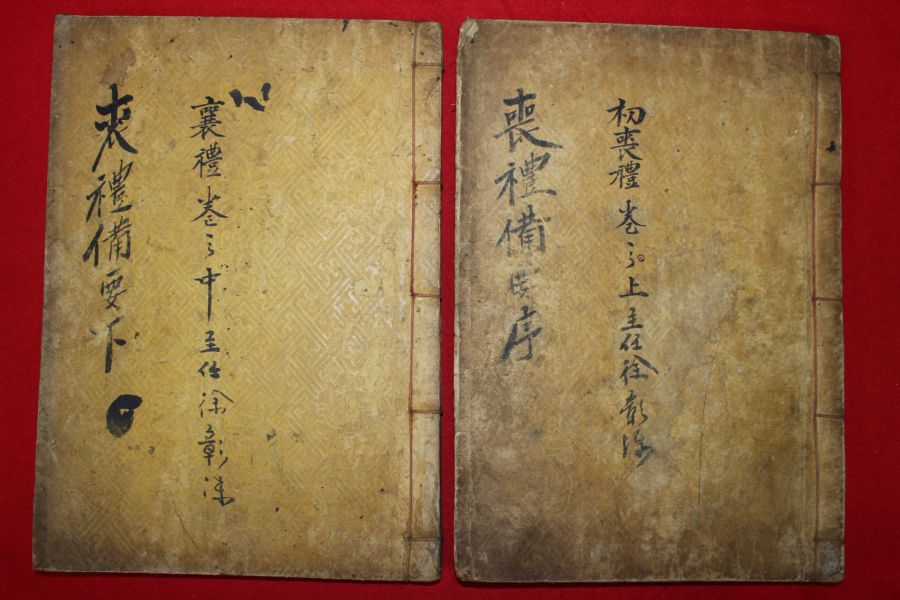 初喪禮 卷之上 主任徐彰
喪禮備 序
襄禮 卷之中 主任徐彰
喪禮備要下